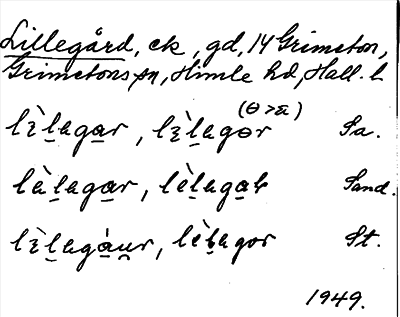 Lillegård, ck, gd, 1/4 Grimeton,
Grimetons sn, Himle hd, Hall. l
(ɵ>a)
lɛ̀l̠aga̠r, lɛ̀l̠agɵr Sa.
làl̠aga̠r, lèl̠aga̠r Sand.
lɛ̀l̠agà̠u̯r, lèl̠agor St.
1949.